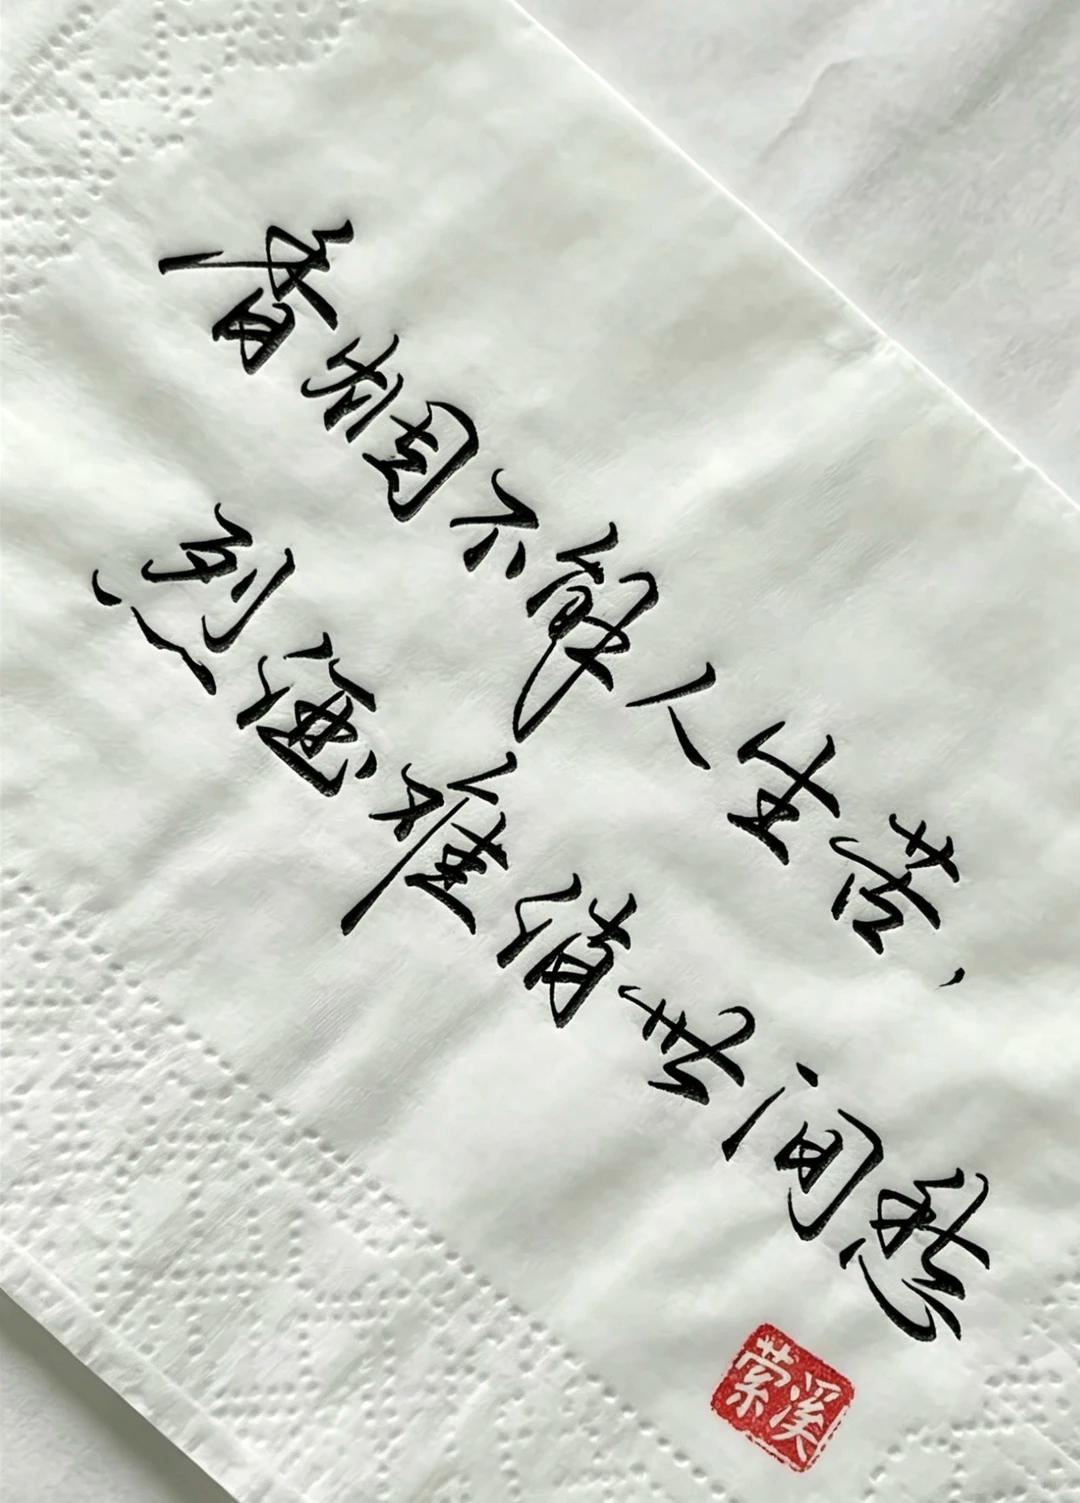 香烟不解人生苦，
烈酒难消世间愁
萦溪